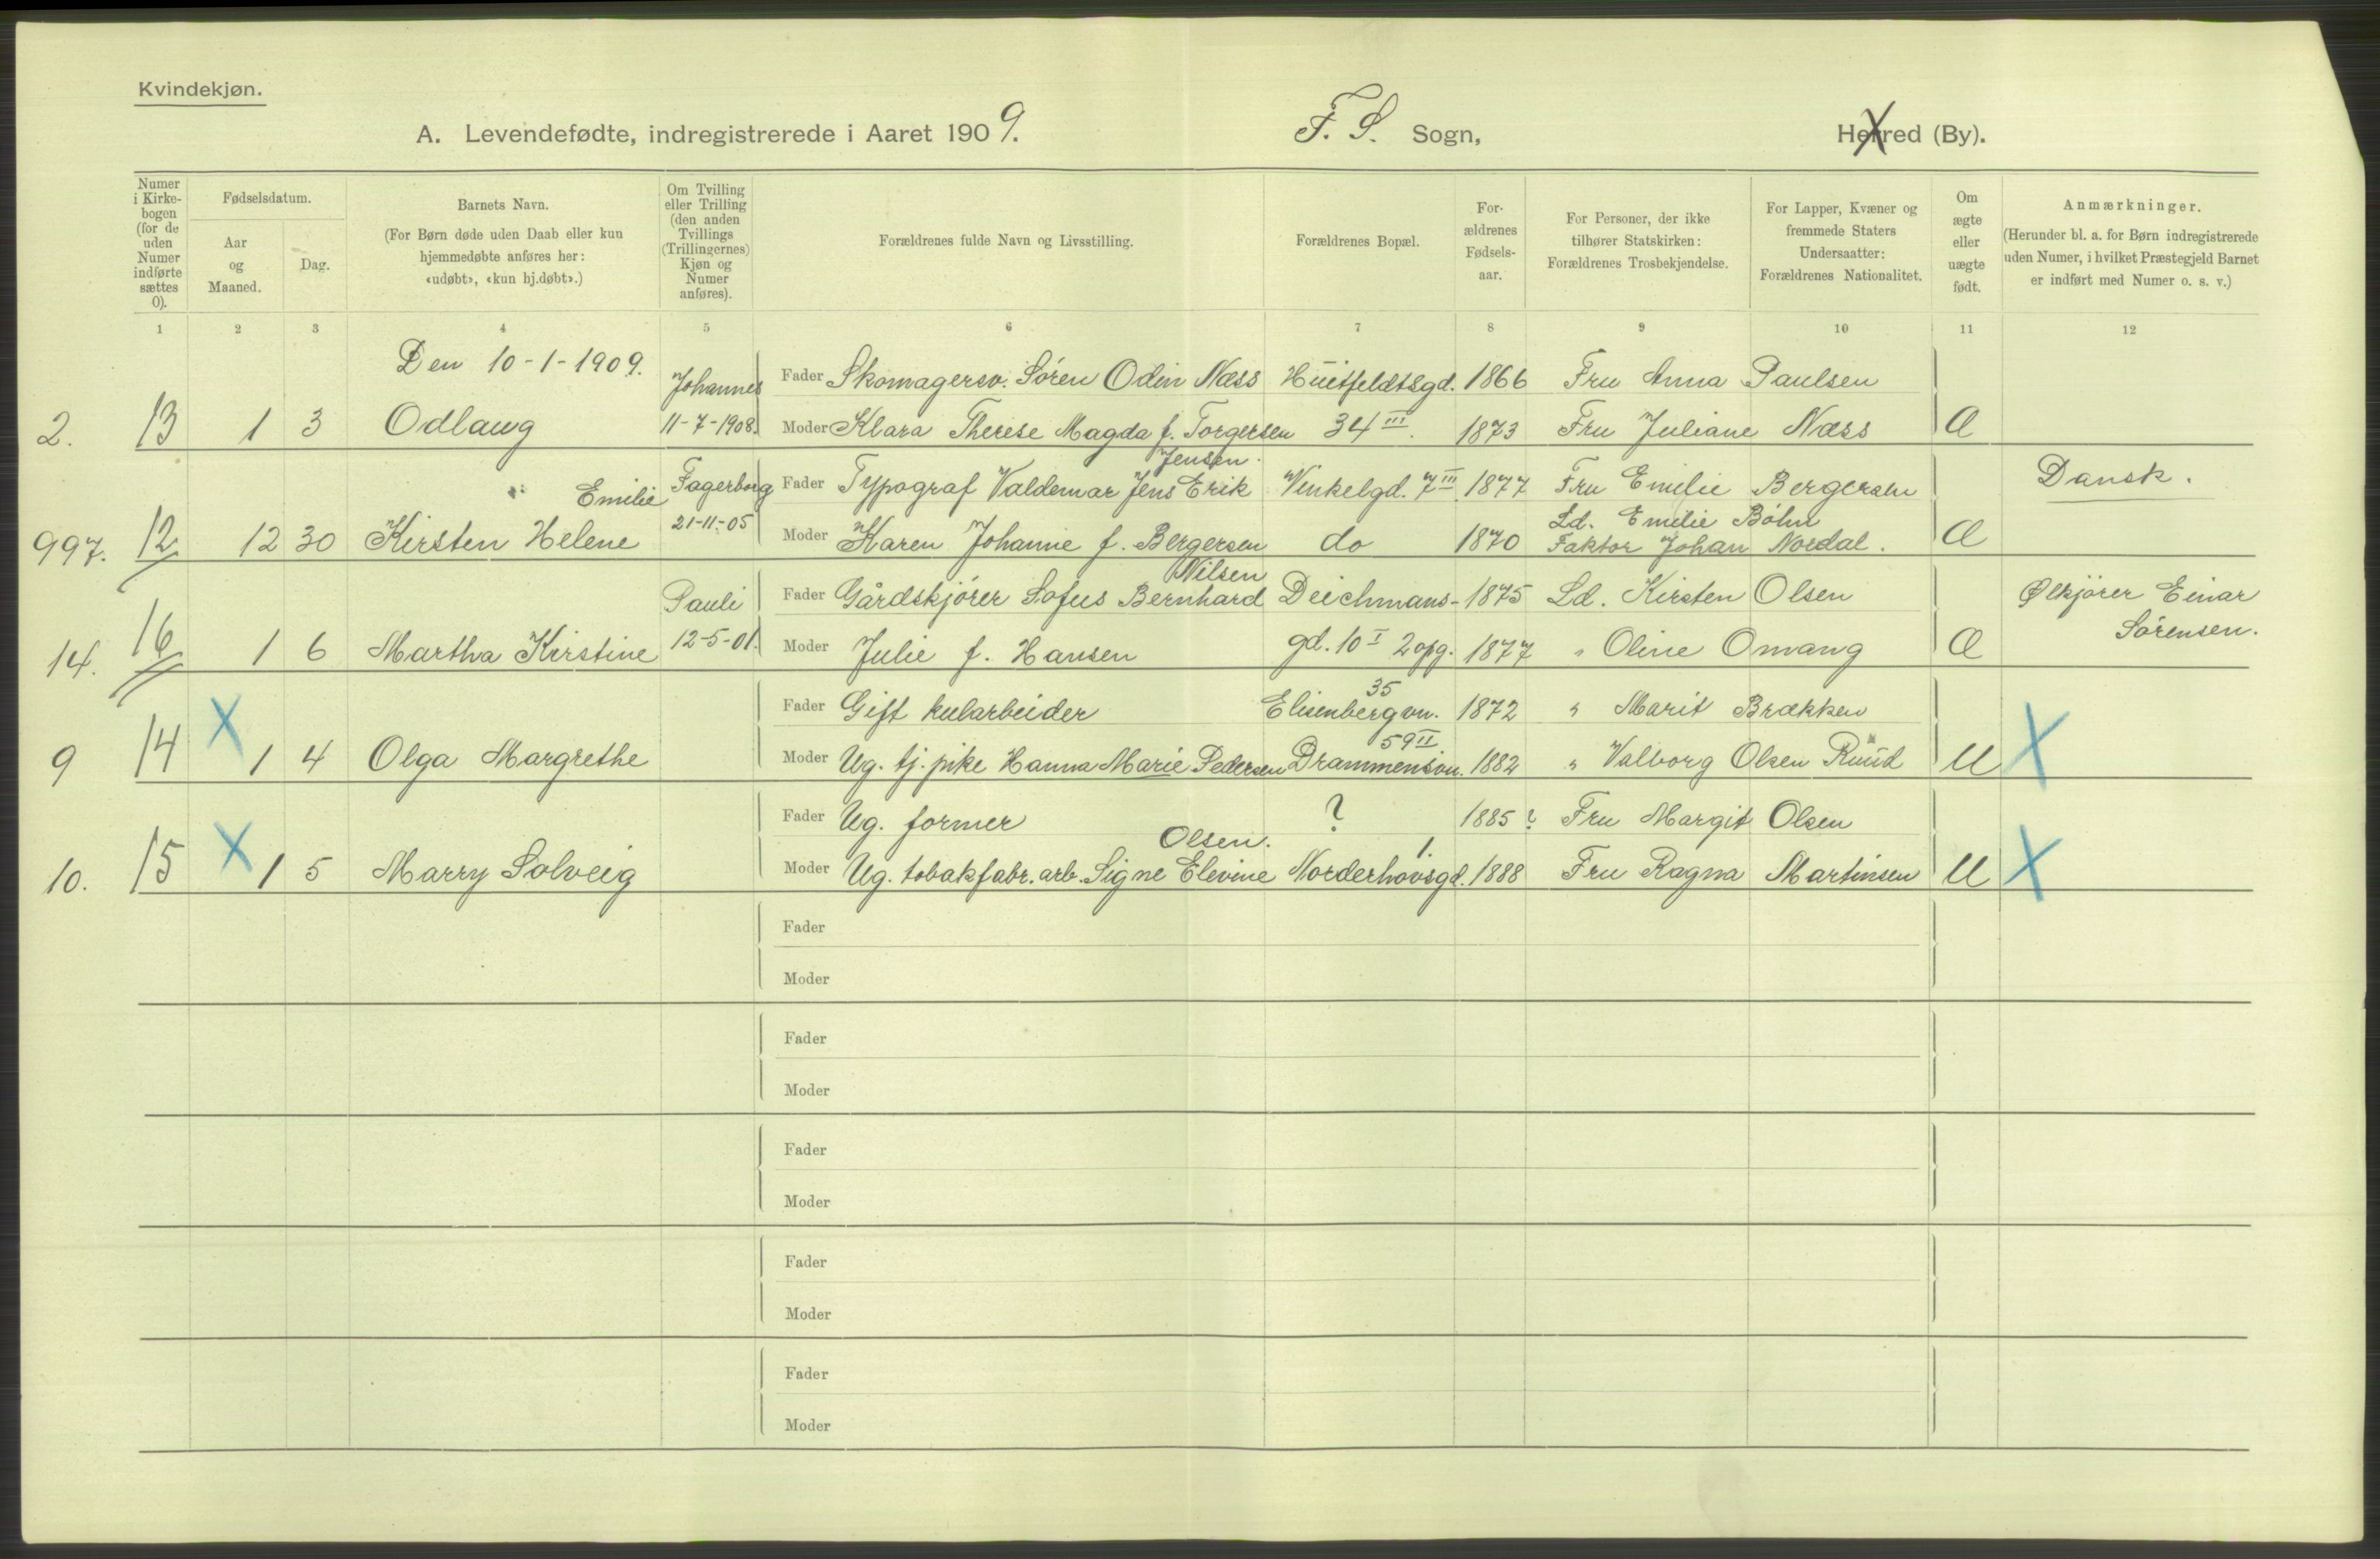 Kvindekjøn.
A. Levendefødte, indregistrerede i Aaret 1909. F. S. Sogn, Herred (By).
Numer i Kirkebogen (for de uden Numer indførte sættes 0).
Fødselsdatum.
Aar og Maaned.
Dag.
Barnets Navn.
(For Børn døde uden Daab eller kun hjemmedøbte anføres her: «udøbt», «kun hj.døbt».)
Om Tvilling eller Trilling (den anden Tvillings (Trillingernes) Kjøn og Numer anføres).
Forældrenes fulde Navn og Livsstilling.
Forældrenes Bopæl.
For-ældrenes Fødsels-aar.
For Personer, der ikke tilhører Statskirken: Forældrenes Trosbekjendelse.
For Lapper, Kvæner og fremmede Staters Undersaatter: Forældrenes Nationalitet.
Om ægte eller uægte født.
Anmærkninger.
(Herunder bl. a. for Børn indregistrerede uden Numer, i hvilket Præstegjeld Barnet er indført med Numer o. s. v.)
1 2 3 4 5 6 7 8 9 10 11 12
Den 10-1-1909.
Johannes Fader Skomagersv. Søren Odin Næss Huitfeldtsgd. 1866 Fru Anna Paulsen
2. 13 1 3 Odlaug 11-7-1908. Moder Klara Therese Magda f. Torgersen 34 III. 1873 Fru Juliane Næss Æ
Jensen.
Emilie Fagerborg Fader Typograf Valdemar Jens Erik Vinkelgd. 7 III. 1877 Fru Emilie Bergersen Dansk.
Ld. Emilie Bøhn
997. 12 12 30 Kirsten Helene 21-11-05 Moder Karen Johanne f. Bergersen do 1870 Faktor Johan Nordal. Æ
Nilsen
Pauli Fader Gårdskjører Sofus Bernhard Deichmans- 1875 Ld. Kirsten Olsen Ølkjører Einar
Sørensen.
14. 16 1 6 Martha Kirstine 12-5-01. Moder Julie f. Hansen gd. 10 I 2 opg. 1877 " Oline Omang Æ
35
X Fader Gift kularbeider Elisenbergvn. 1872 " Marit Brækken
59 II
9 14 1 4 Olga Margrethe Moder Ug. tj. pike Hanna Marie Pedersen Drammensvn. 1882 " Valborg Olsen Ruud U X
Fader Ug. former ? 1885? Fru Margit Olsen
Olsen. 1.
10. 15 X 1 5 Marry Solveig Moder Ug. tobakfabr. arb. Signe Elevine Norderhovsgd. 1888 Fru Ragna Martinsen U X
Fader
Moder
Fader
Moder
Fader
Moder
Fader
Moder
Fader
Moder